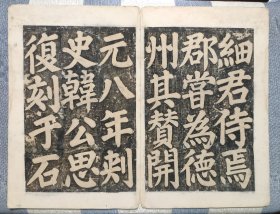 細君侍焉
郡嘗為德
州其贊開
元八年刺
史韓公思
復刻于石